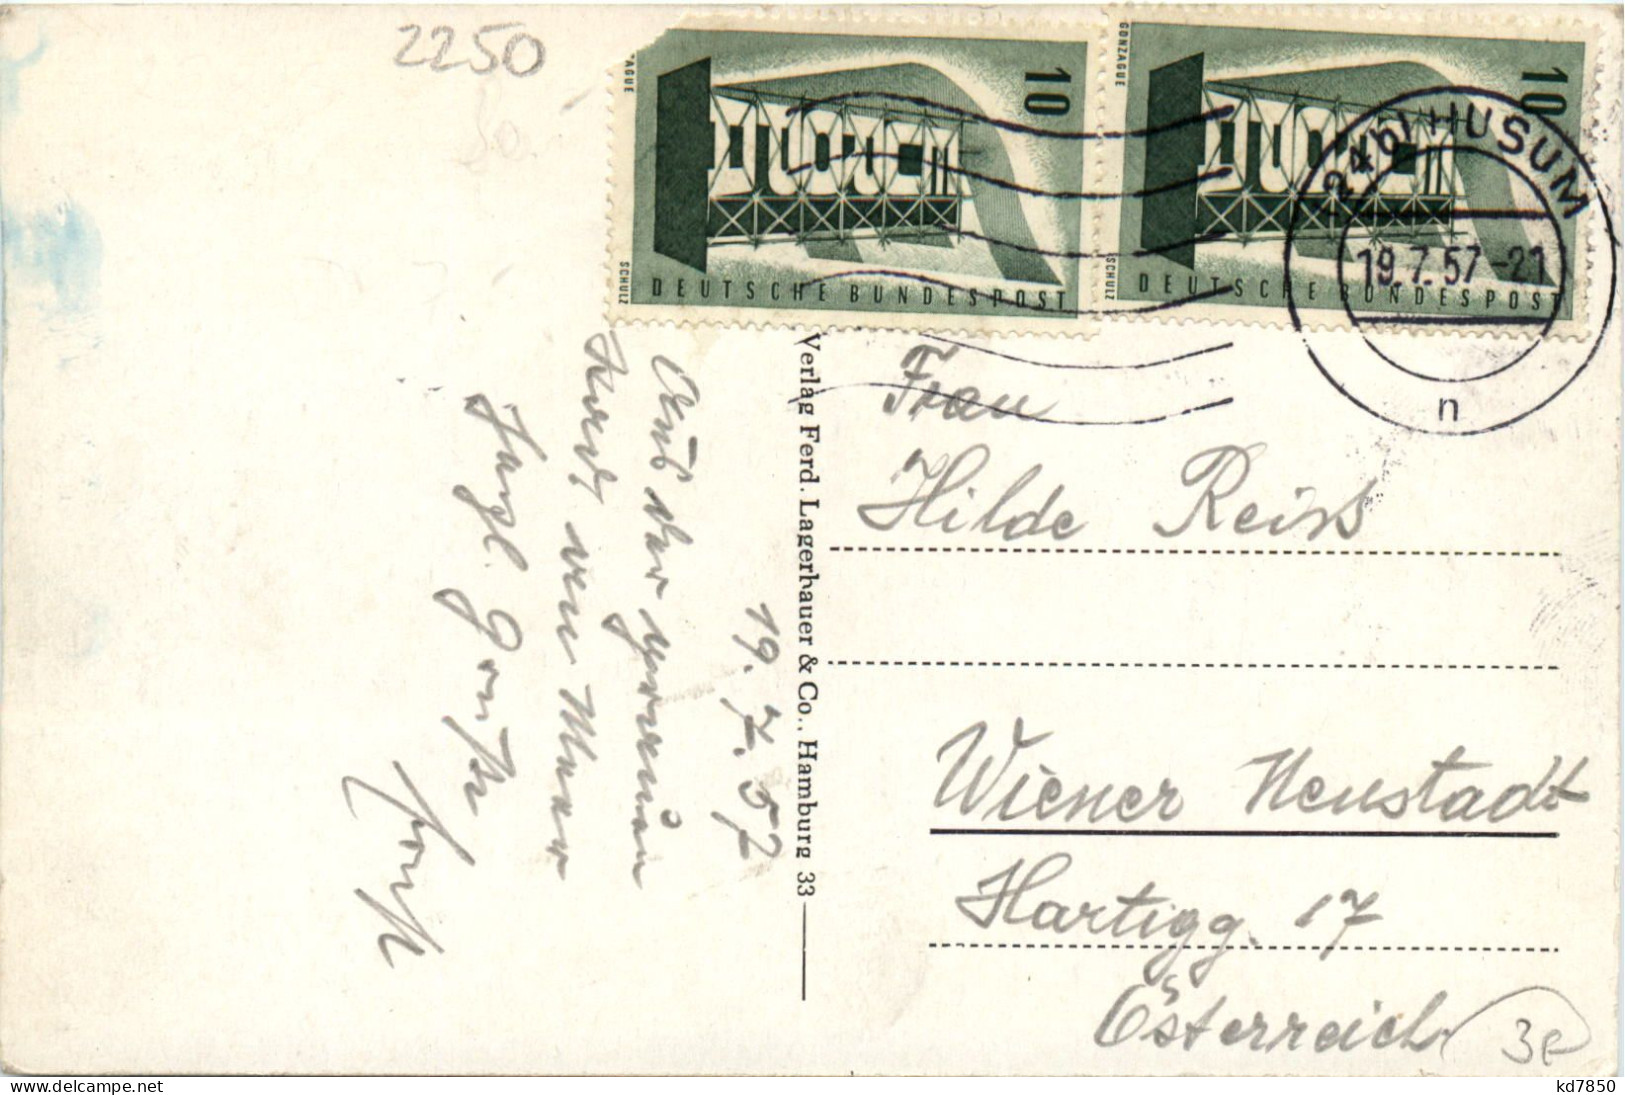 2250
GONZAGUE
10
10
24b HUSUM
19.7.57-21
n
SCHULZ
SCHULZ
DEUTSCHE BUNDESPOST
DEUTSCHE BUNDESPOST
19. 7. 57
Aus der grauen
am Meer
Herzl. Grüße
Verlag Ferd. Lagerhauer & Co., Hamburg 33
Frau
Hilde Reiss
Wiener Neustadt
Hartigg. 17
Österreich
3E
kd7850